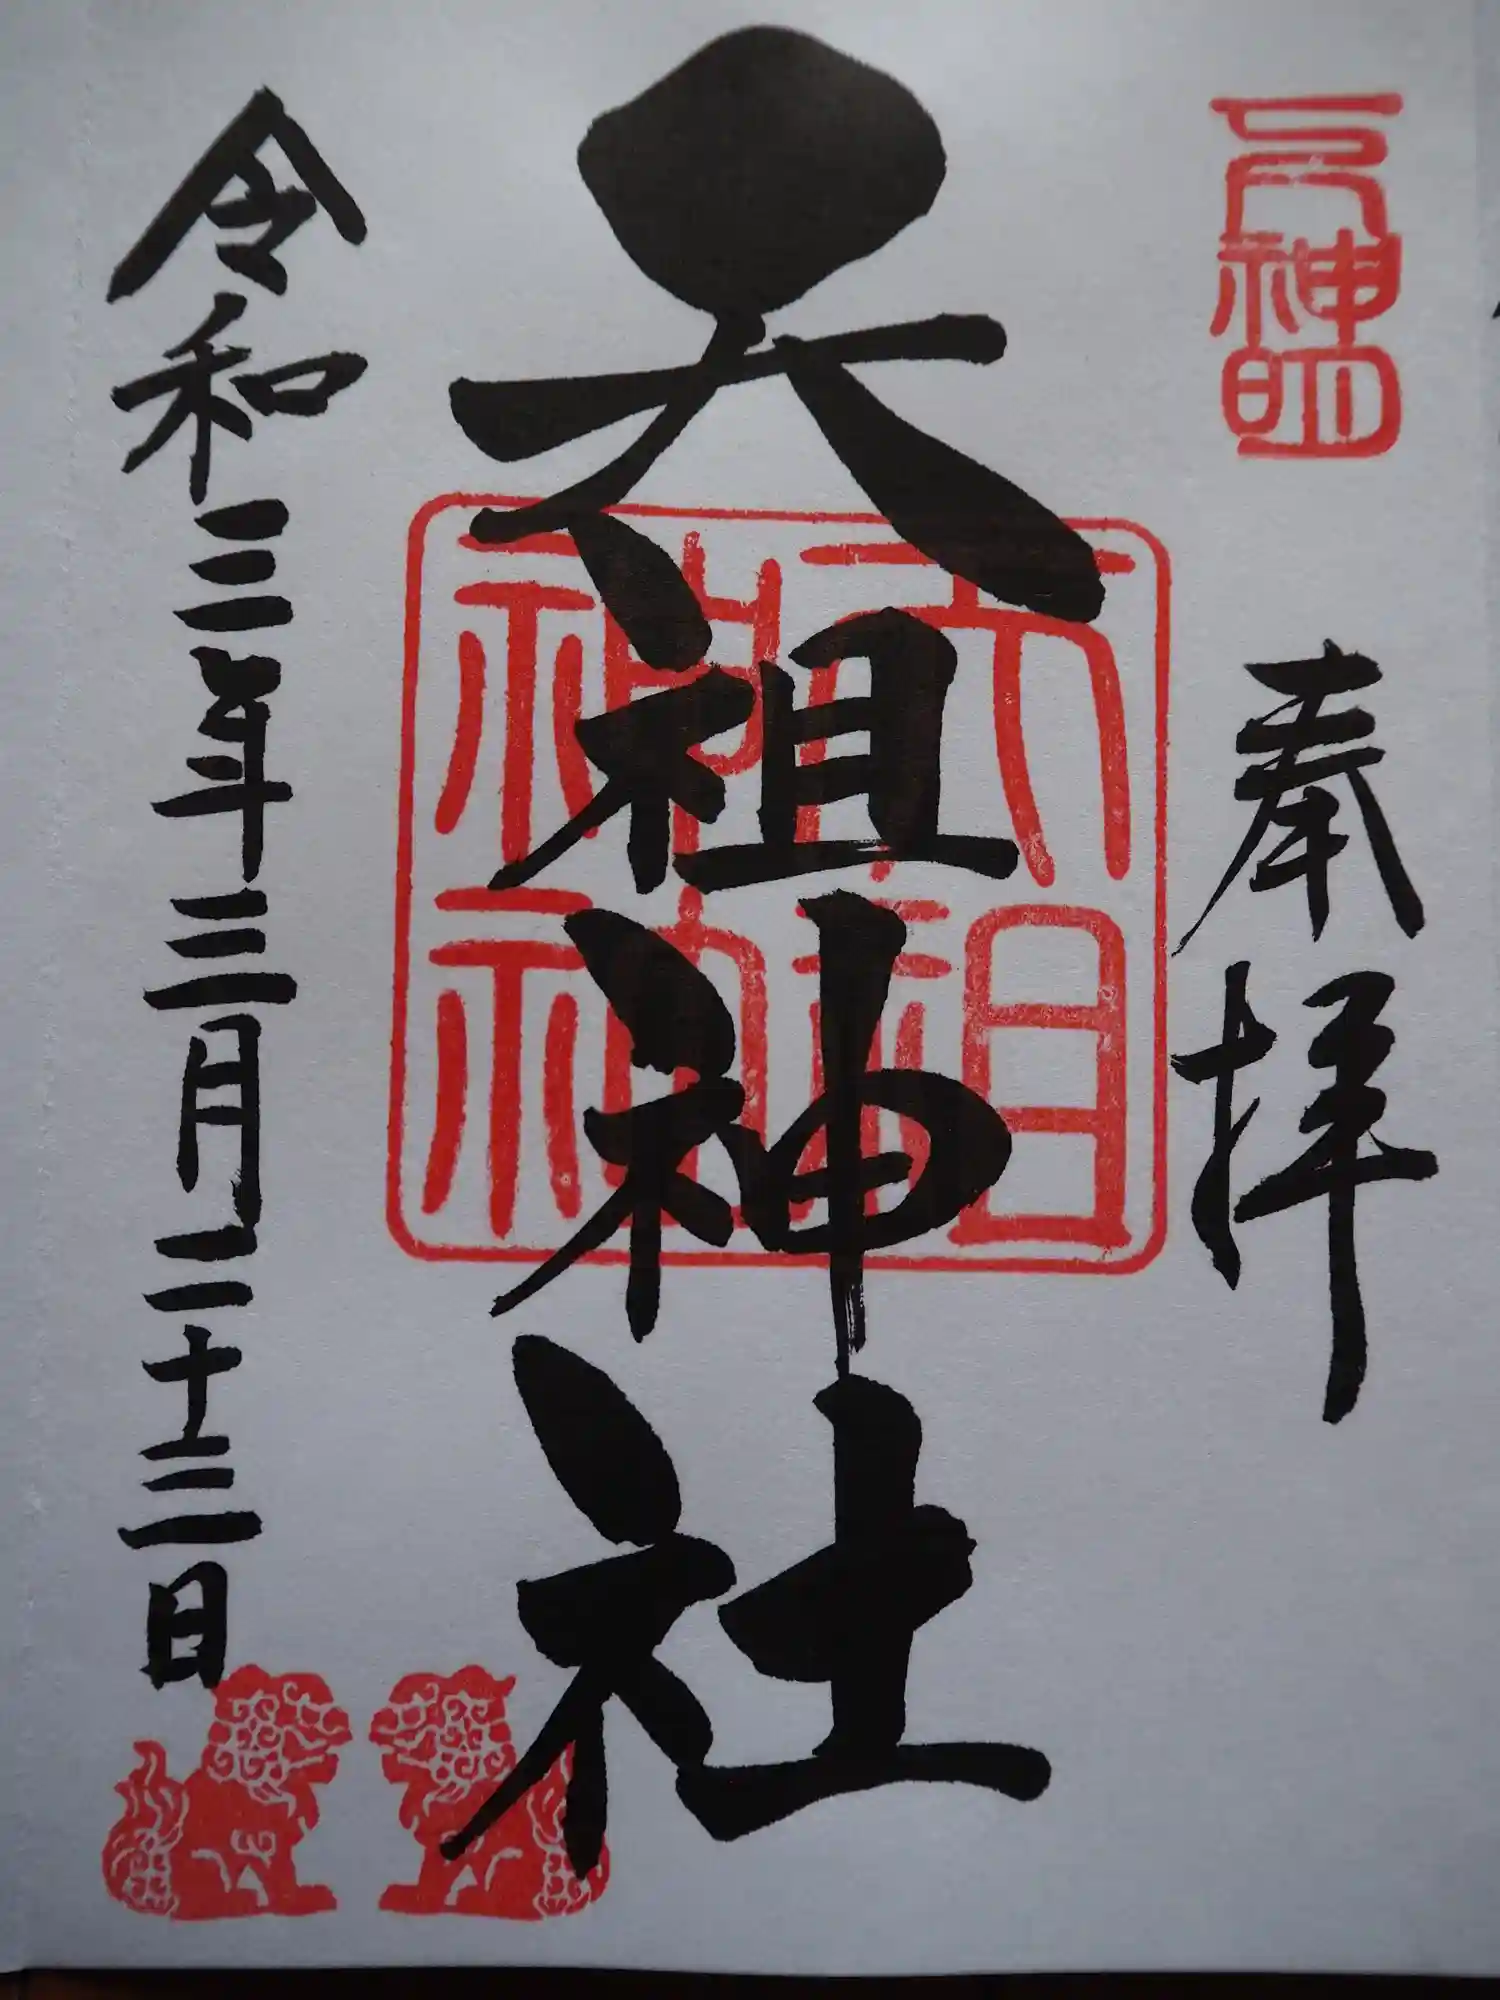 元神明
奉拝
天祖神社
天祖
神社
令和三年三月二十三日